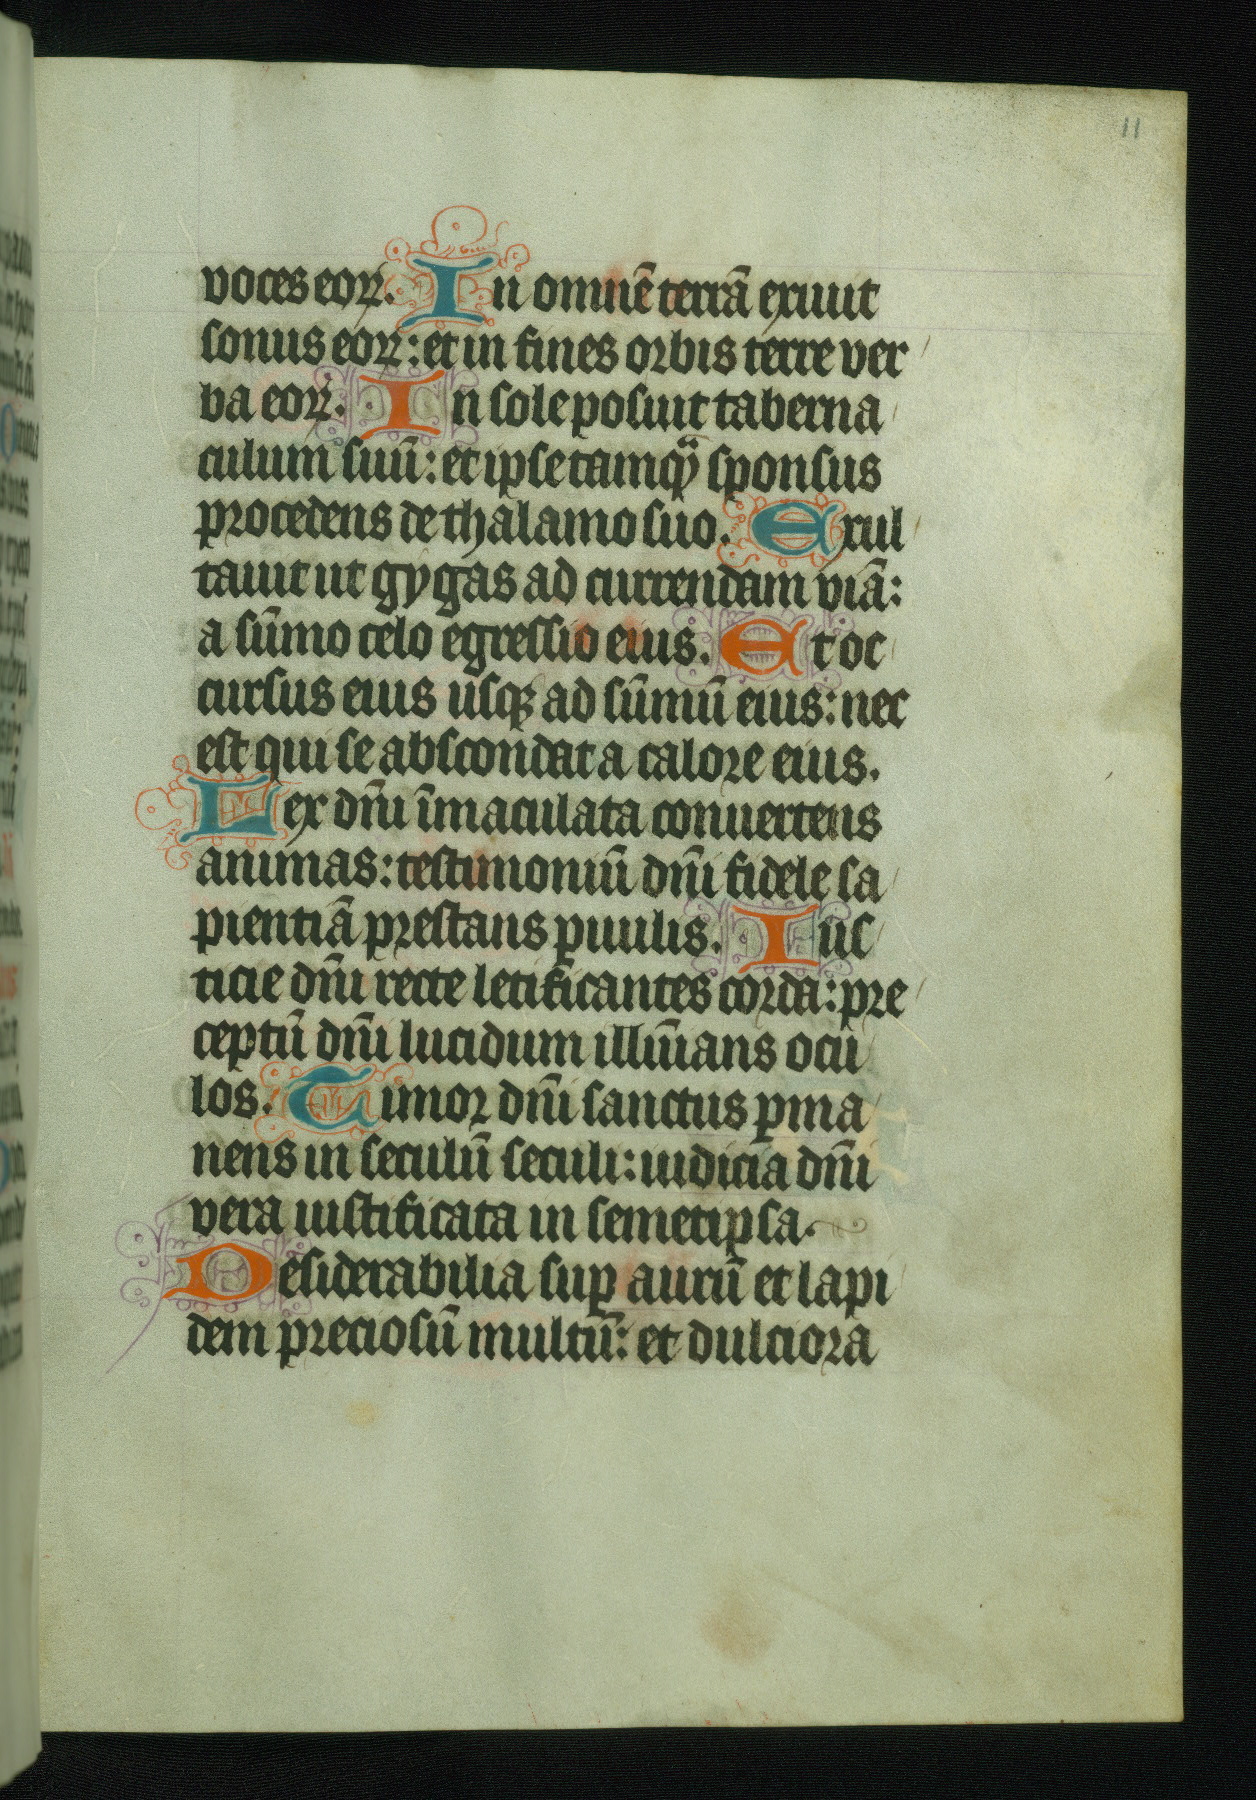 11
voces eoꝝ. In omnē terrā exiuit
sonus eoꝝ: et in fines orbis terre ver
ba eoꝝ. In sole posuit taberna
culum suū: et ipse tamqͣ sponsus
procedens de thalamo suo. Exul
tauit ut gygas ad currendam viā:
a sūmo celo egressio eius. Et oc
cursus eius usqꝫ ad sūmū eius: nec
est qui se abscondat a calore eius.
Lex dn̄i īmaculata conuertens
animas: testimoniū dn̄i fidele sa
pientiā prestans ꝑuulis. Ius
ticie dn̄i recte letificantes corda: pre
ceptū dn̄i lucidum illūians ocu
los. Timor dn̄i sanctus ꝑma
nens in seculū seculi: iudicia dn̄i
vera iustificata in semetipsa.
Desiderabilia suꝑ aurū et lapi
dem preciosū multū: et dulciora